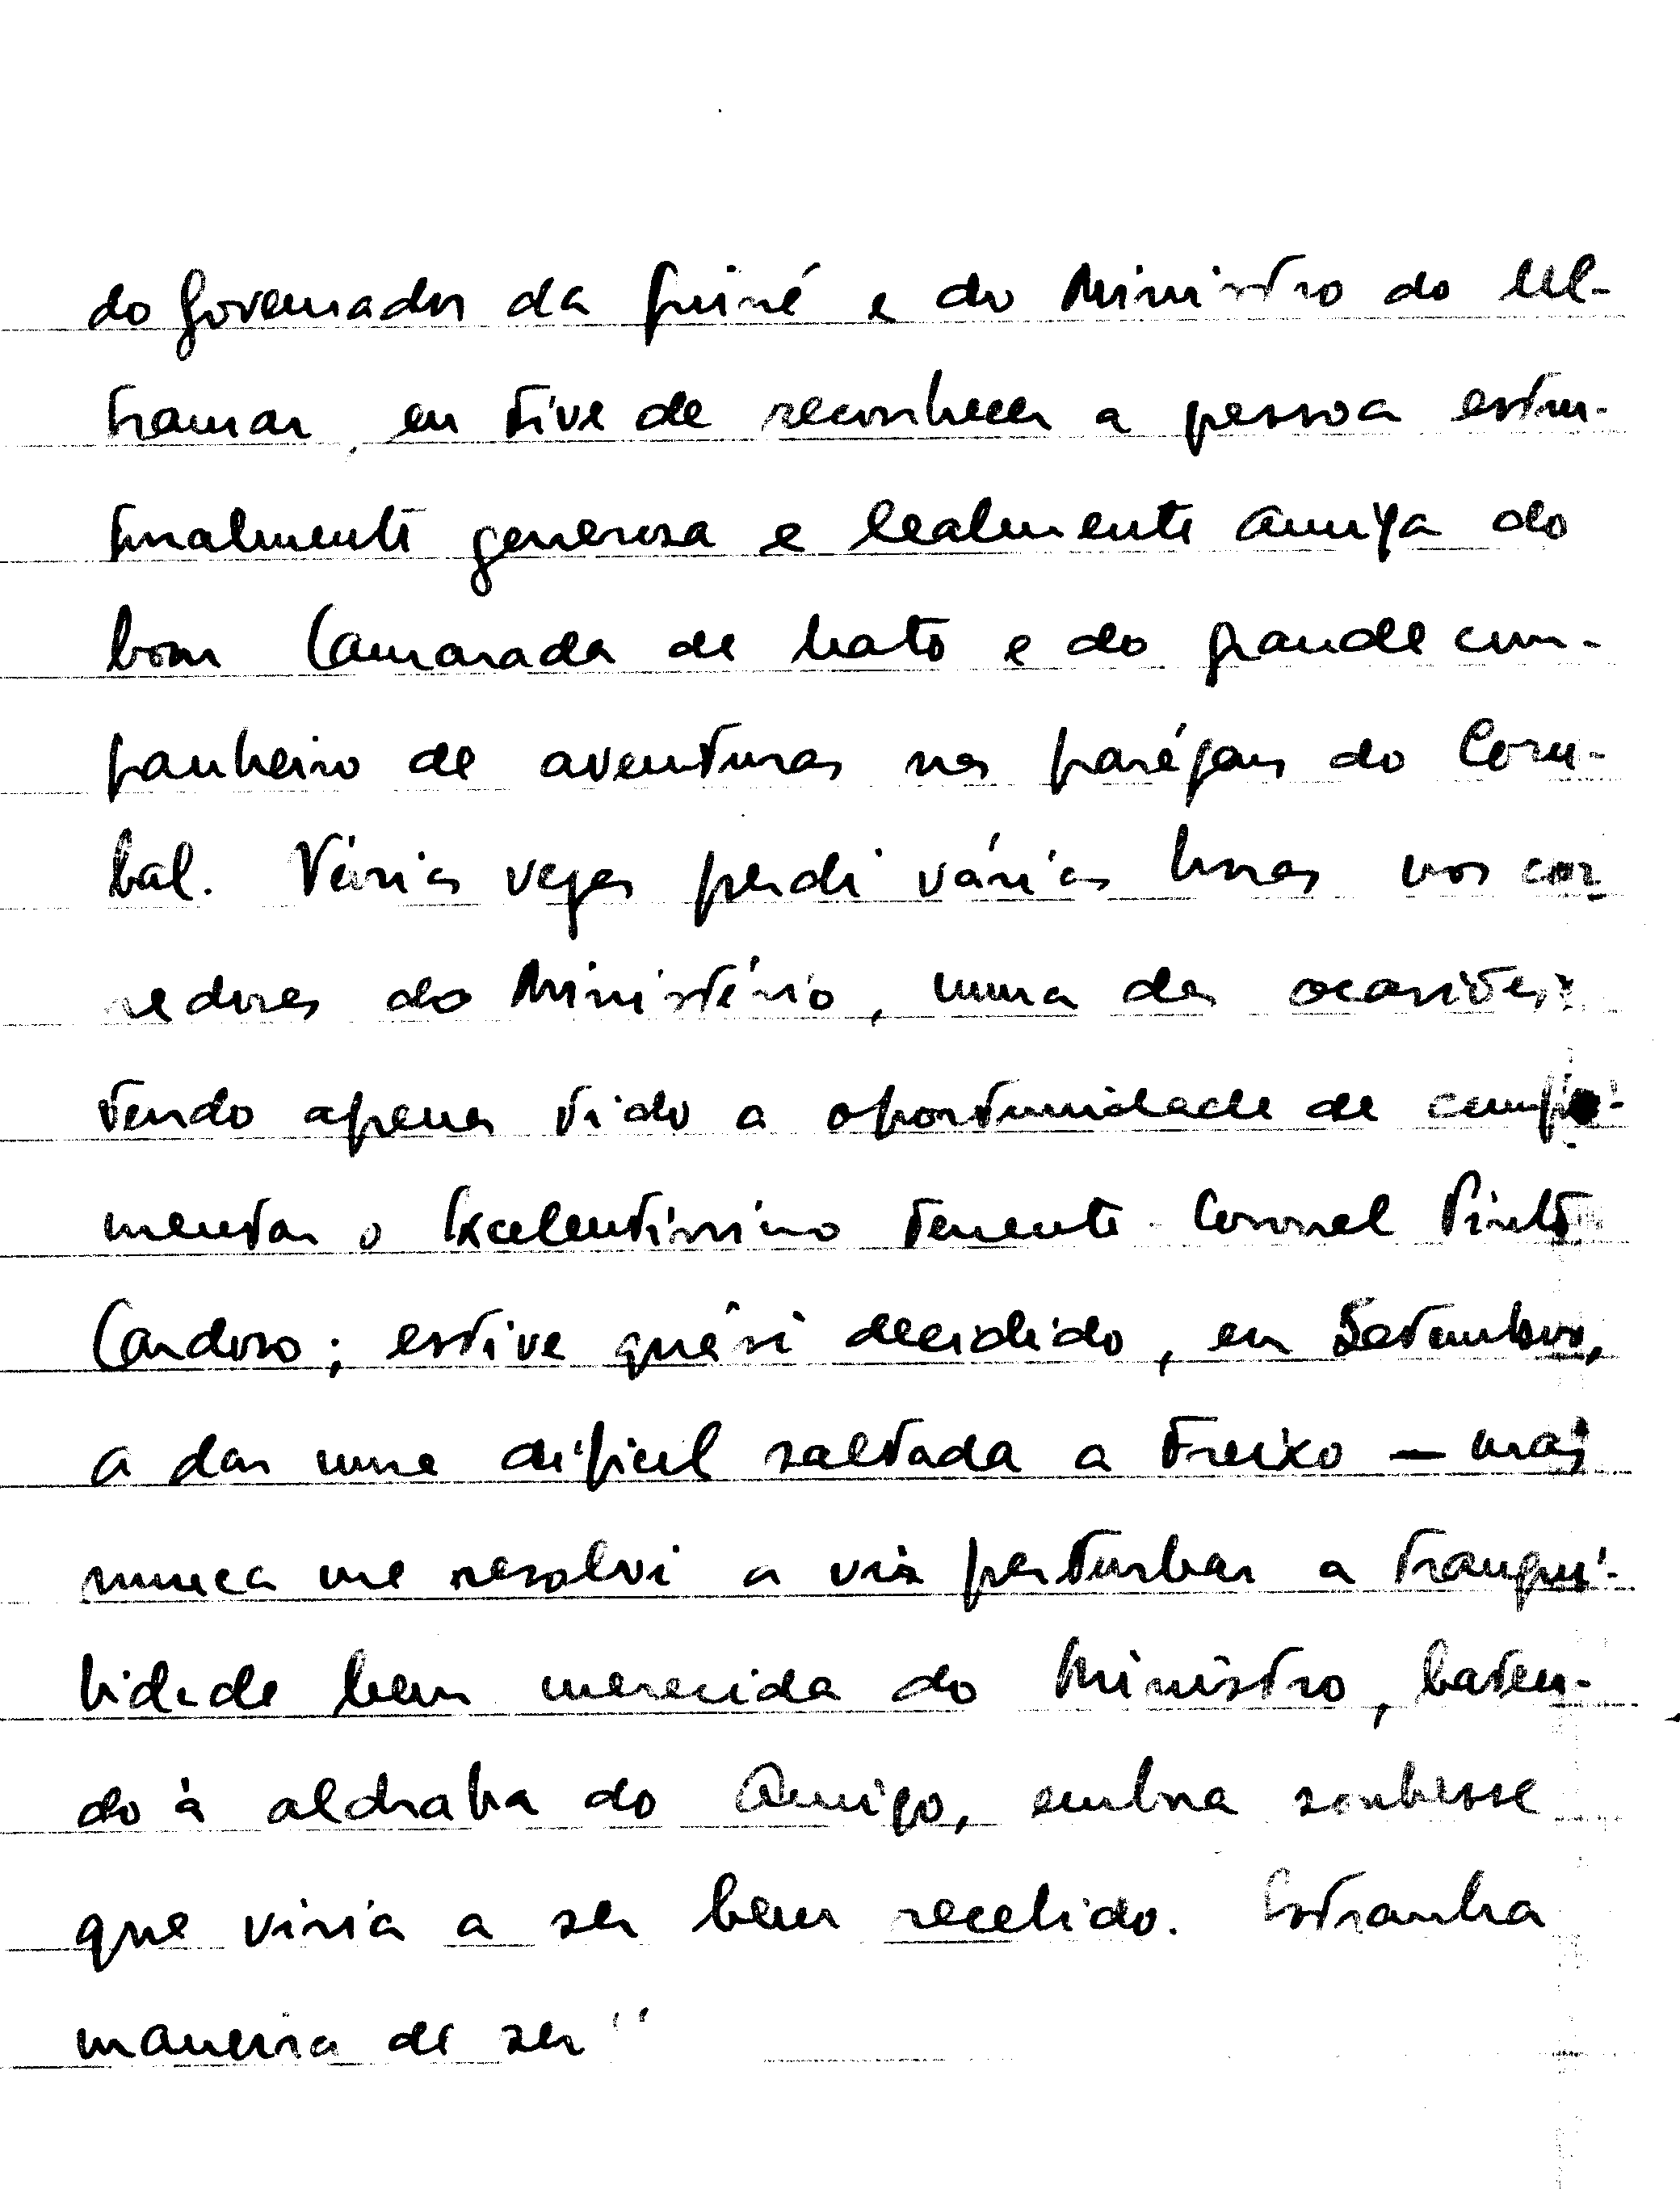 do Governador da Guiné e do Ministro do Ul-
tramar, eu tive de reconhecer a pessoa estru-
turalmente generosa e lealmente amiga do
bom Camarada de mato e do grande com-
panheiro de aventuras nas parágens do Coru-
bal. Várias vezes perdi várias horas nos cor-
redores do Ministério, numa das ocasiões
tendo apenas tido a oportunidade de cumpri-
mentar o Excelentíssimo Tenente-Coronel Pinto
Cardoso; estive quási decidido, em Setembro,
a dar uma difícil saltada a Freixo — mas
nunca me resolvi a vir perturbar a tranqui-
lidade bem merecida do Ministro, baten-
do à aldraba do Amigo, embora soubesse
que viria a ser bem recebido. Estranha
maneira de ser"